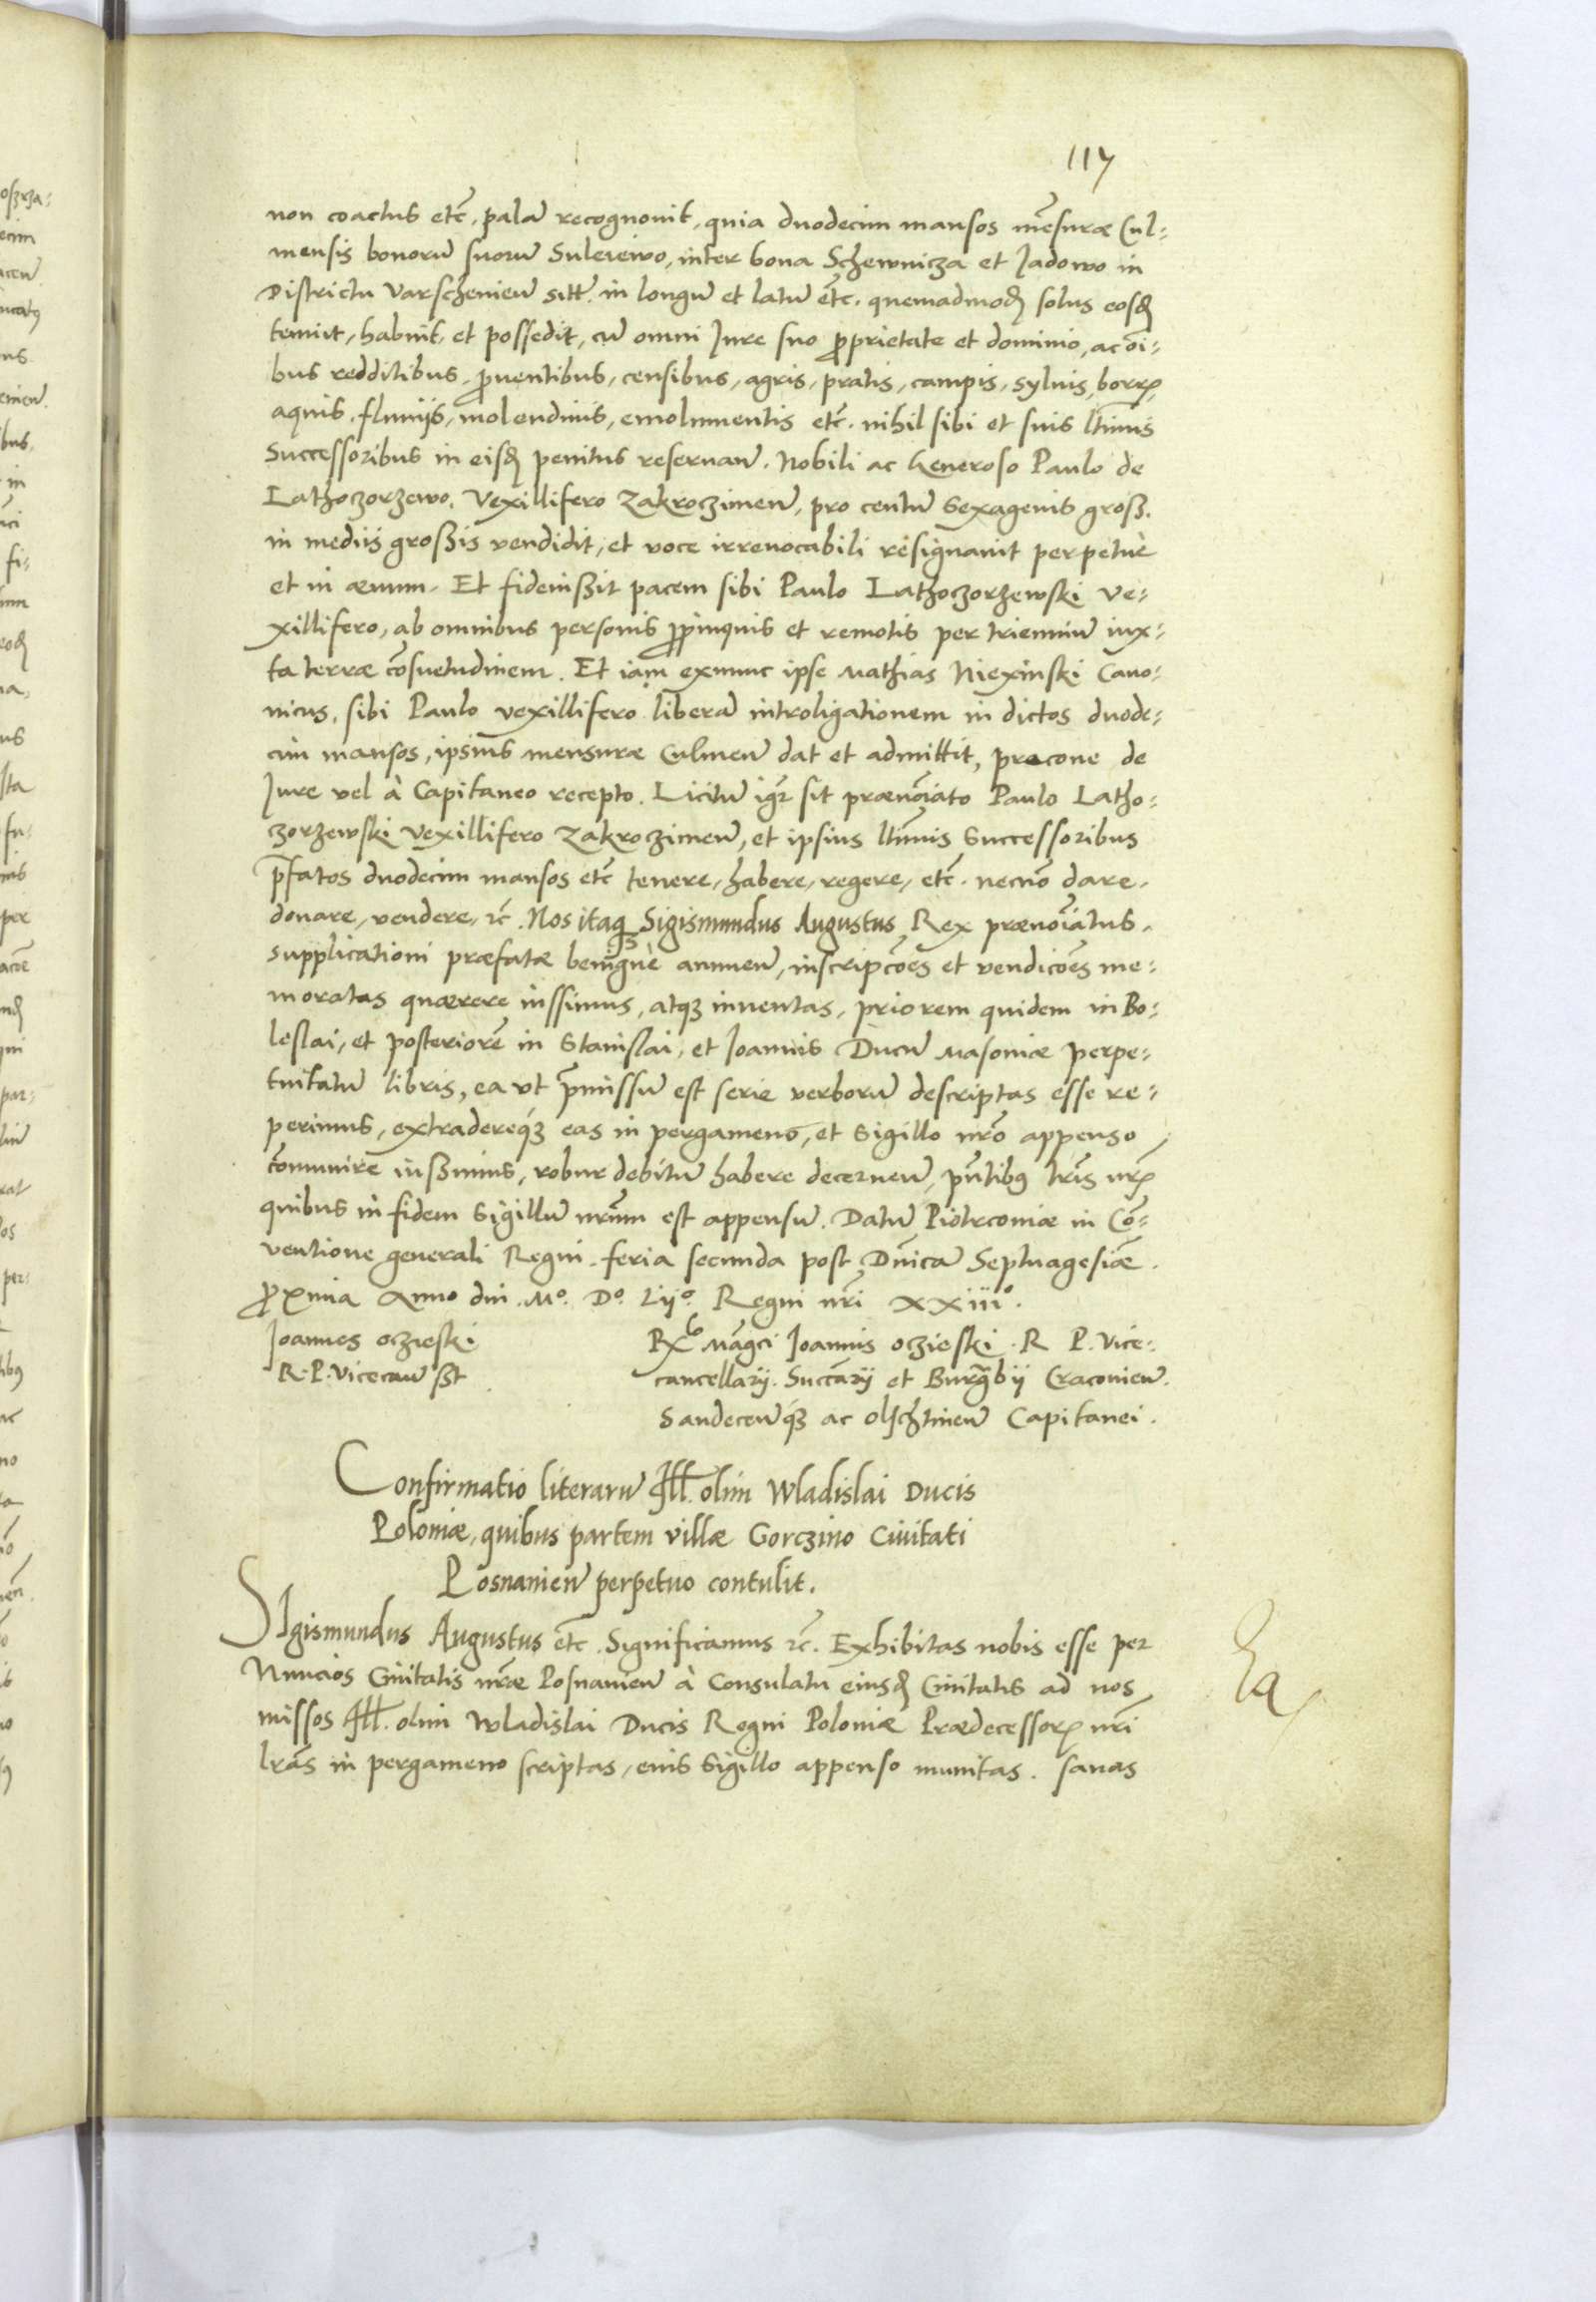 117
non coactus etc̃, palã recognovit, quia duodecim mansos mẽsuræ Cul-
mensis bonorũ suorũ Suleiewo, inter bona Schewnicza et Jadowo in
Districtu Varschenieñ sitt. in longũ et latũ etc̃. quemadmoď solus eosď
tenuit, habuit, et possedit, cũ omni Jure suo ꝓprietate et dominio, ac oĩ-
bus redditibus, ꝓventibus, censibus, agris, pratis, campis, sylvis, borrꝭ,
aquis, fluvijs, molendinis, emolumentis etc̃. nihil sibi et suis ltĩmis
Successoribus in eisď penitus reservañ. Nobili ac Generoso Paulo de
Lathoczorzewo, Vexillifero Zakroczimeñ, pro centũ Sexagenis groß.
in mediis großis vendidit, et voce irrevocabili resignavit perpetuè
et in ævum. Et fideiußit pacem sibi Paulo Lathoczorzewski Ve-
xillifero, ab omnibus personis ꝓpinquis et remotis per trienniũ iux-
ta terræ cõsuetudinem. Et iam exnunc ipse Mathias Niexinski Cano-
nicus, sibi Paulo vexillifero liberã introligationem in dictos duode-
cim mansos, ipsius mensuræ Culmeñ dat et admittit, precone de
Jure vel à Capitaneo recepto. Licitũ igr̃ sit prænoĩato Paulo Latho-
czorzewski Vexillifero Zakroczimeñ, et ipsius ltĩmis Successoribus
p̃fatos duodecim mansos etc̃ tenere, habere, regere, etc̃. necnõ dare,
donare, vendere, ⁊c̃. Nos itaqꝫ Sigismundus Augustus Rex prænoĩatus,
supplicationi præfatæ benignè annueñ, inscripcões et vendicões me-
moratas quærere iussimus, atqꝫ inventas, priorem quidem in Bo-
leslai, et posteriorẽ in Stanislai, et Joannis Ducũ Masoviæ perpe-
tuitatũ libris, ea vt p̃missũ est serie verborũ descriptas esse re-
perimus, extradereqꝫ eas in pergameno, et Sigillo nr̃o appenso
cõmunire iußimus, robur debitũ habere decerneñ, pñtibꝰ lr̃is nr̃ꝭ
quibus in fidem Sigillũ nr̃um est appensũ. Datũ Piotrcoviæ in Cõ-
ventione generali Regni, feria secunda post Dñicã Septuagesiæ̃
ꝓxima Anno dñi Mº. Dº. Lijº. Regni nr̃i XXiiiº.
Joannes Oczieski
R. P. Vicecañ sst
Rº Mãgci Joannis Oczieski R P. Vice-
cancellarij. Succãrij et Burgr̃bij Cracovieñ.
Sandeceñqꝫ ac Olschtineñ Capitanei.
Confirmatio literarũ Ill. olim Wladislai Ducis
Poloniæ, quibus partem villæ Gorczino Civitati
Posnanieñ perpetuo contulit.
SIgismundus Augustus etc̃. Significamus ⁊c̃. Exhibitas nobis esse per
Nuncios Civitatis nr̃æ Posnanieñ à Consulatu eiusď Civitatis ad nos
missos Ill. olim Wladislai Ducis Regni Poloniæ Prædecessorꝭ nr̃i
lr̃as in pergameno scriptas, eius Sigillo appenso munitas. sanas